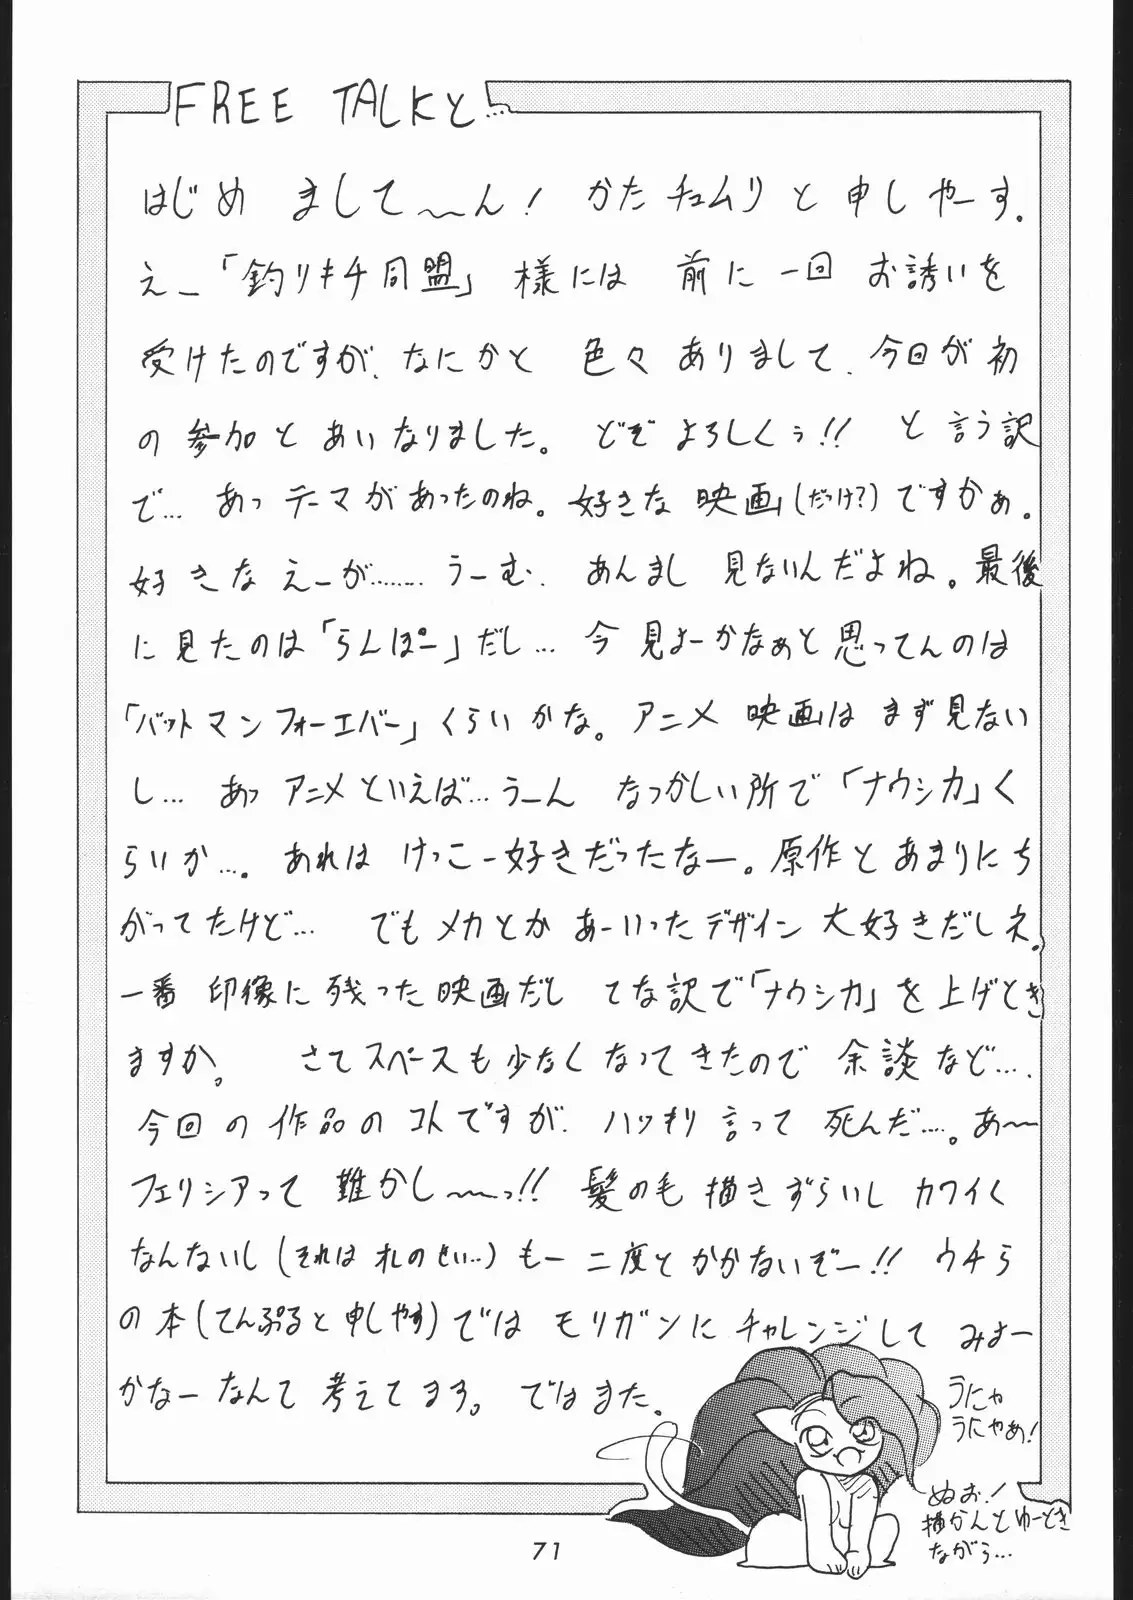 FREE TALKと…
はじめ まして〜ん! かたチュムリ と 申しやーす.
え–「釣りキチ同盟」様には 前に 一回 お誘いを
受けたのですが、なにかと 色々 ありまして、今回が初
の 参加と あいなりました。どぞ よろしくぅ!! と 言う訳
で… あっ テーマがあったのね。好きな 映画(だっけ?)ですかぁ。
好きな えーが……… うーむ、あんまし 見ないんだよね。最後
に見たのは「らんぽー」だし… 今 見よーかなぁと思ってんのは
「バットマンフォーエバー」くらいかな。アニメ 映画は まず見ない
し… あっ アニメといえば…うーん なつかしい所で「ナウシカ」く
らいか…. あれは けっこー好きだったなー。原作と あまりにち
がってたけど… でも メカとか あーいったデザイン 大好きだしネ。
一番 印像に 残った映画だし てな訳で「ナウシカ」を上げとき
ますか。 さてスペースも少なくなってきたので 余談など….
今回の作品のコトですが、ハッキリ言って 死んだ…。あ〜
フェリシアって 難かし〜っ!! 髪の毛 描きずらいし カワイく
なんないし(それは オレのせい…)もー 二度と かかないぞー!! ウチら
の本(てんぷると 申しやす)では モリガンにチャレンジして みよー
かなーなんて 考えてます。ではまた.
うにゃ
うにゃぁ!
ぬお!
描かんとゆーとき
ながら…
71